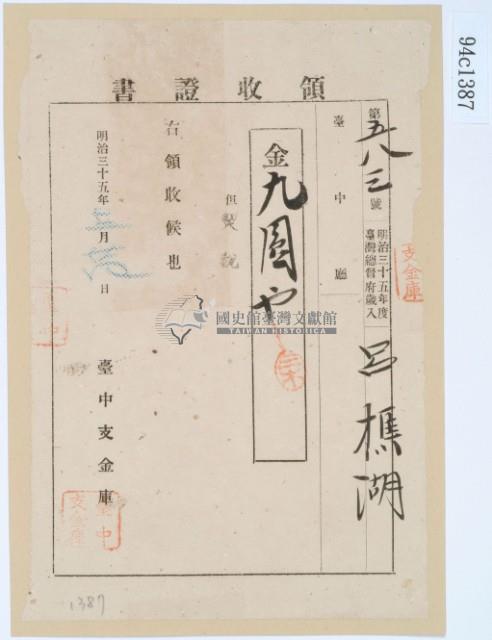 94c1387
領收證書
第五八三號
明治三十五年度
臺灣總督府歲入
呂樵湖
臺中廳
金九圓也
但
右領收候也
明治三十五年 月 日
臺中支金庫
支金庫
臺中
支金庫
國史館臺灣文獻館
TAIWAN HISTORICA
1387